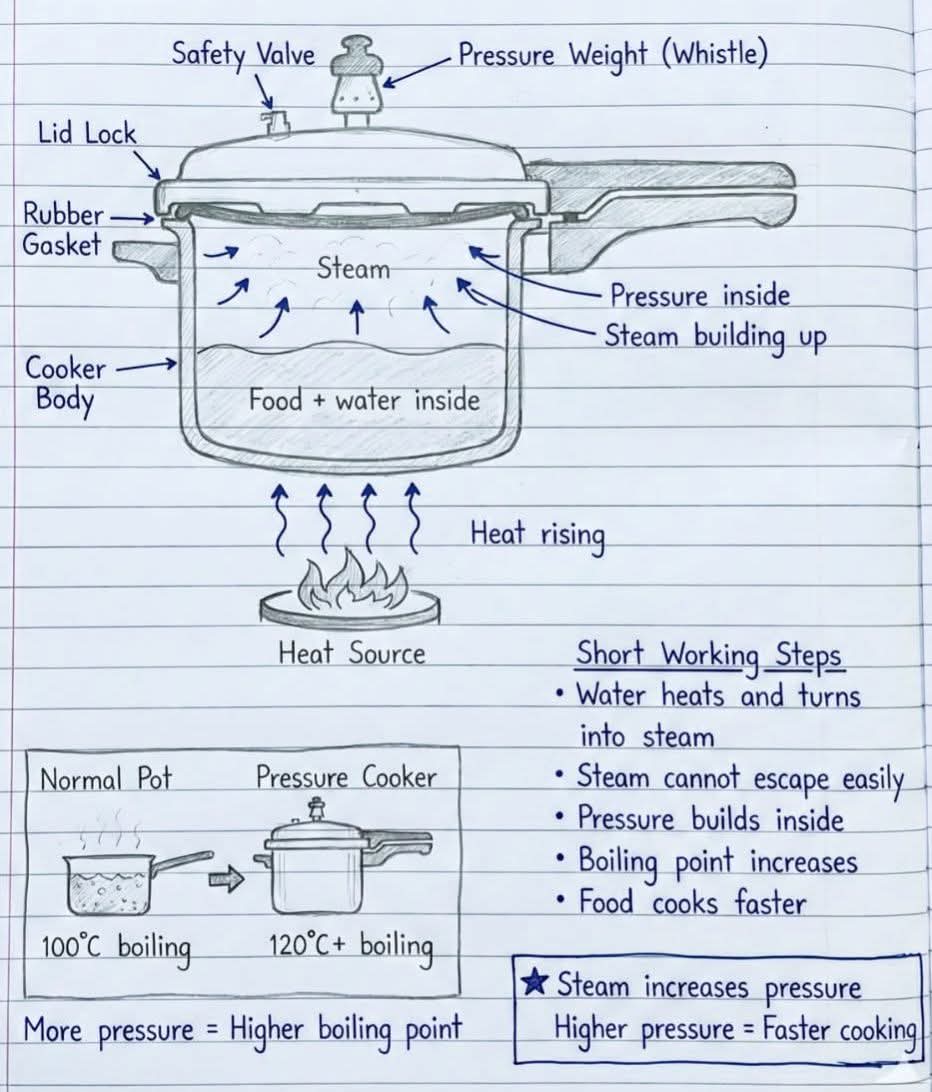 Safety Valve
Pressure Weight (Whistle)
Lid Lock
Rubber
Gasket
Steam
Pressure inside
Steam building up
Cooker
Body
Food + water inside
Heat rising
Heat Source
Short Working Steps
• Water heats and turns
into steam
• Steam cannot escape easily
• Pressure builds inside
• Boiling point increases
• Food cooks faster
Normal Pot
Pressure Cooker
100°C boiling
120°C+ boiling
More pressure = Higher boiling point
★ Steam increases pressure
Higher pressure = Faster cooking